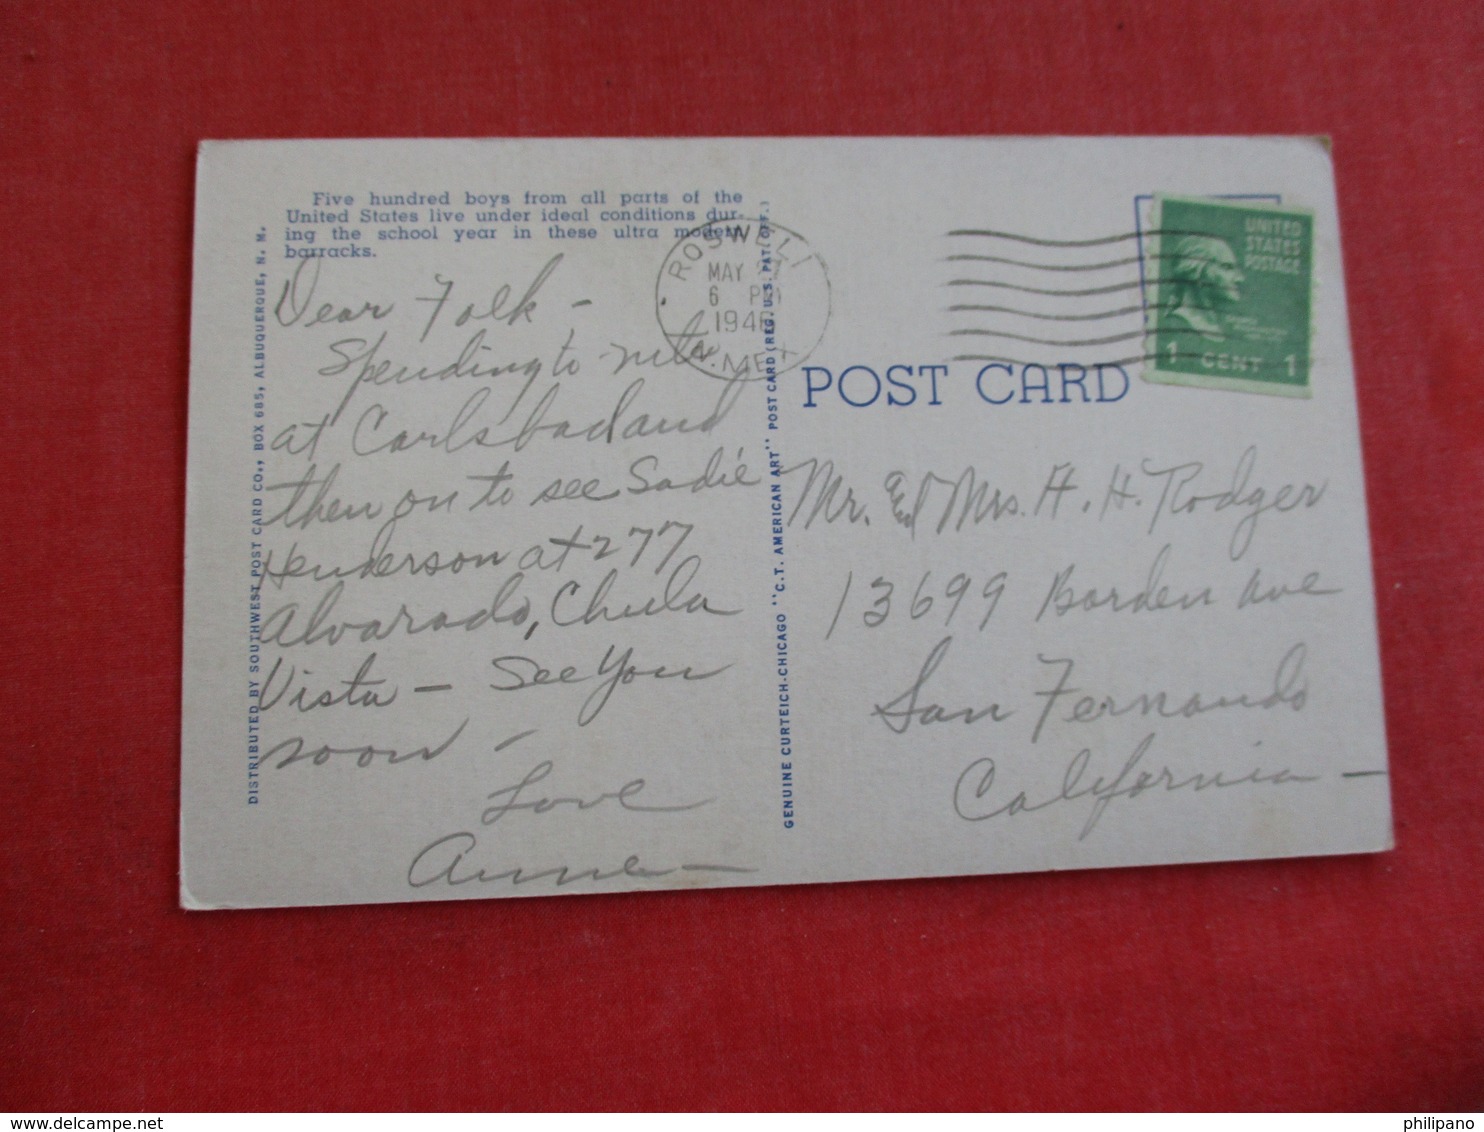 Five hundred boys from all parts of the
United States live under ideal conditions dur-
ing the school year in these ultra modern
barracks.
DISTRIBUTED BY SOUTHWEST POST CARD CO., BOX 685, ALBUQUERQUE, N. M.
Dear Folk -
Spending to-nite
at Carlsbad and
then on to see Sadie
Henderson at 277
Alvarado, Chula
Vista - See You
soon -
Love
Anne
GENUINE CURTEICH-CHICAGO "C.T. AMERICAN ART" POST CARD (REG. U.S. PAT. OFF.)
ROSWELL
MAY
6 PM
194
N. MEX
UNITED
STATES
POSTAGE
1 CENT 1
POST CARD
Mr. Ed Mrs. H. H. Rodger
13699 Borden Ave
San Fernando
California -
delcampe.net
philipano